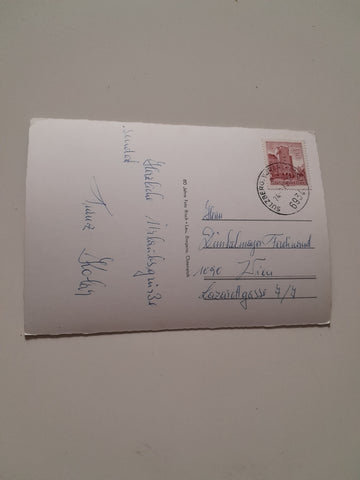 Herzliche Urlaubsgrüße
sendet
Franz
80 Jahre Foto Risch-Lau, Bregenz, Österreich
SULZBERG
6934
Herrn
Dinkelmayer Ferdinand
1090 Wien
Lazarettgasse 7/7